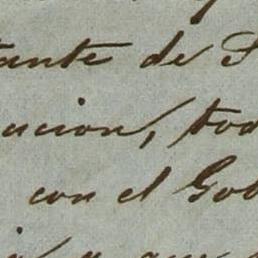 tante de S
uacion, tod
con el Gob
y que